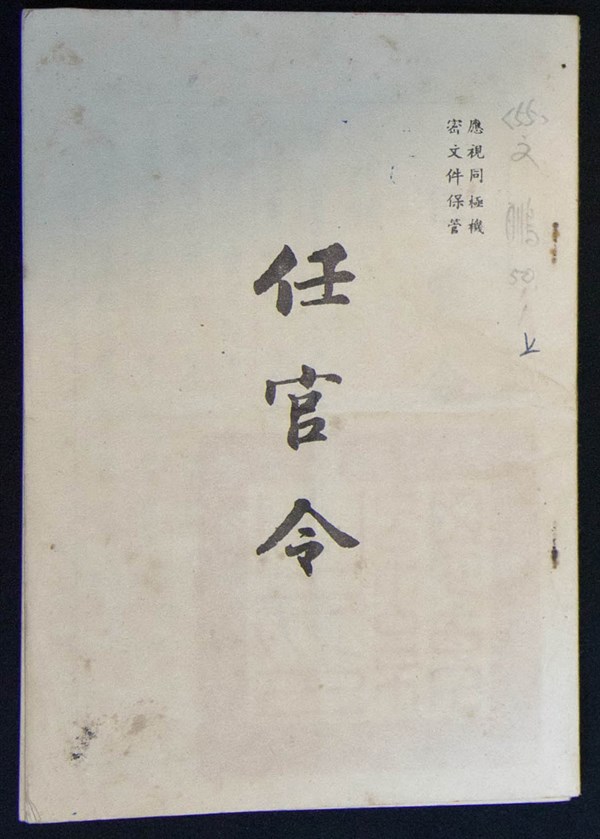 〈55〉文鵬50/1/上
應視同極機
密文件保管
任官令